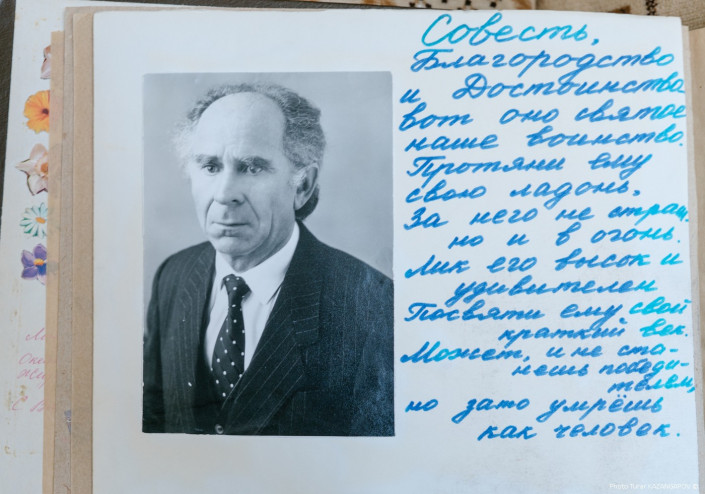 Совесть,
Благородство
и Достоинство
вот оно святое
наше воинство.
Протяни ему
свою ладонь,
За него не страш-
но и в огонь.
Лик его высок и
удивителен
Посвяти ему свой
краткий век.
Может, и не ста-
нешь победи-
телем,
но зато умрёшь
как человек.